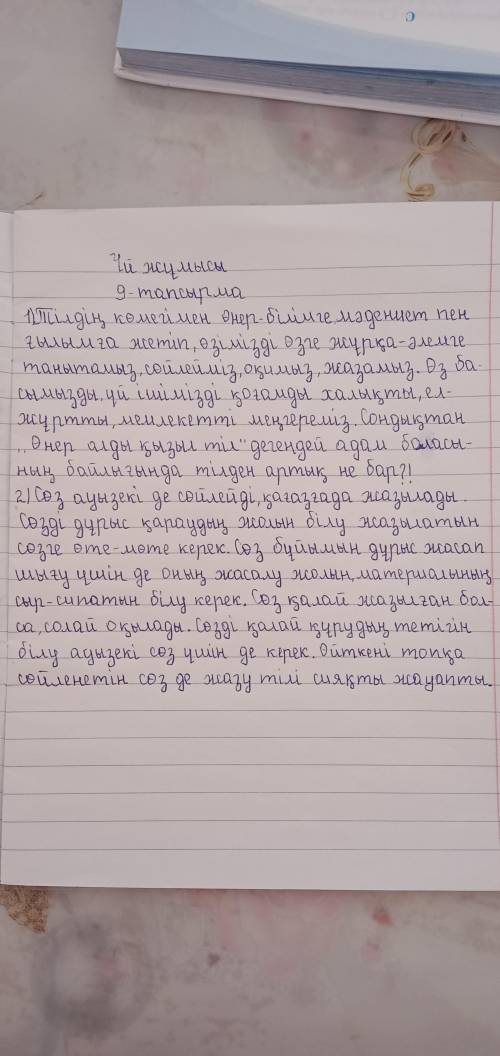 Үй жұмысы
9-тапсырма
1) Тілдің көмегімен өнер-білімге, мәдениет пен
ғылымға жетіп, өзімізді өзге жұрқа-әлемге
танытамыз, сөйлейміз, оқимыз, жазамыз. Өз ба-
сымызды, үй ішімізді қоғамды халықты, ел-
жұртты, мемлекетті меңгереміз. Сондықтан
,,Өнер алды қызыл тіл" дегендей адам баласы-
ның байлығында тілден артық не бар?!
2) Сөз ауызекі де сөйлейді, қағазғада жазылады.
Сөзді дұрыс қараудың жолын білу жазылатын
сөзге өте-мөте керек. Сөз бұйымын дұрыс жасап
шығу үшін де оның жасалу жолын, материалының
сыр-сипатын білу керек. Сөз қалай жазылған бол-
са, солай оқылады. Сөзді қалай құрудың тетігін
білу ауызекі сөз үшін де керек. Өйткені топқа
сөйленетін сөз де жазу тілі сияқты жауапты.